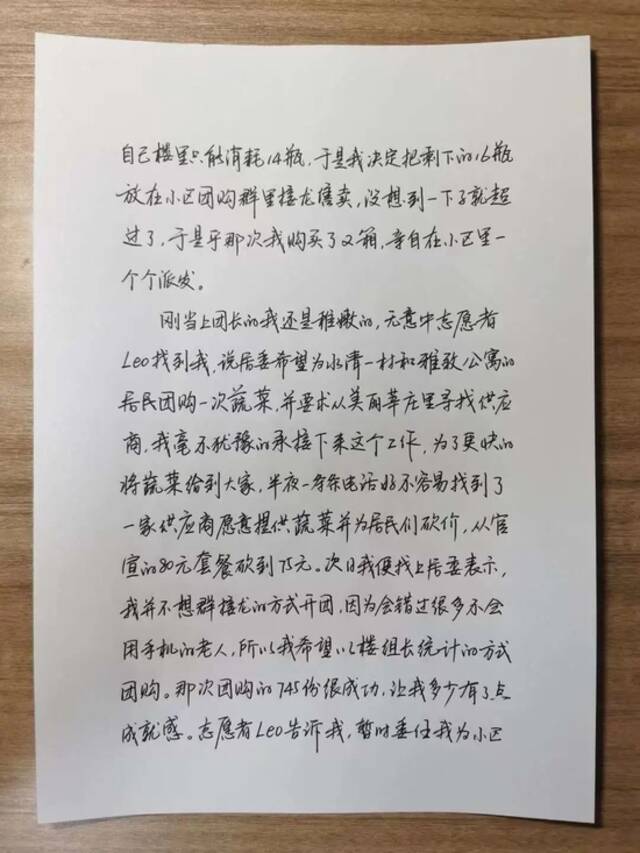 自己楼里只能消耗14瓶，于是我决定把剩下的16瓶
放在小区团购群里接龙售卖，没想到一下子就超
过了，于是乎那次我购买了2箱，亲自在小区里一
个个派发。
刚当上团长的我还是稚嫩的，无意中志愿者
Leo找到我，说居委希望为水清一村和雅致公寓的
居民团购一次蔬菜，并要求从美丽莘庄里寻找供应
商，我毫不犹豫的承接下来这个工作，为了更快的
将蔬菜给到大家，半夜一条电话好不容易找到了
一家供应商愿意提供蔬菜并为居民们砍价，从官
宣的80元套餐砍到75元。次日我便找上居委表示，
我并不想群接龙的方式开团，因为会错过很多不会
用手机的老人，所以我希望以楼组长统计的方式
团购。那次团购的745份很成功，让我多少有了点
成就感。志愿者Leo告诉我，暂时委任我为小区